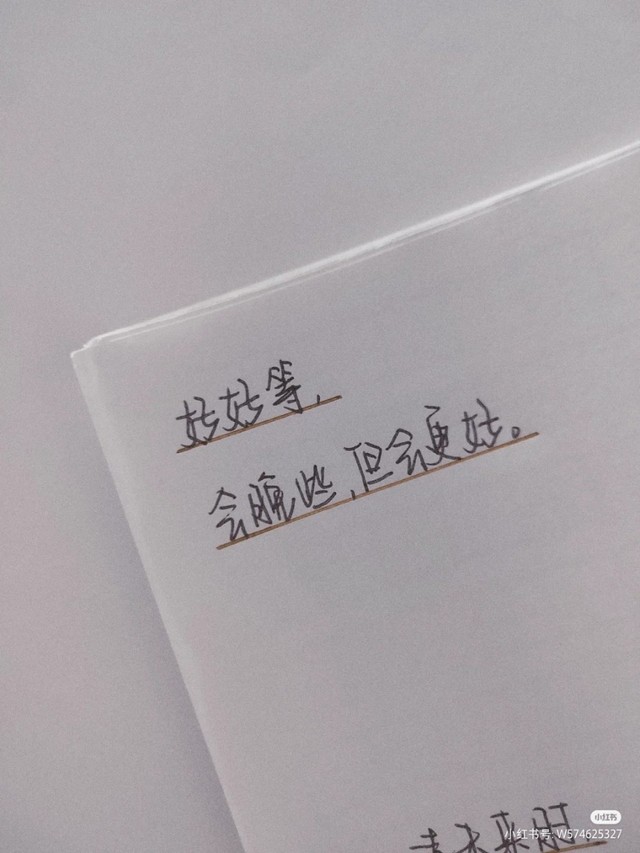 好好等，
会晚些，但会更好。
未来时
小红书
小红书号: W574625327